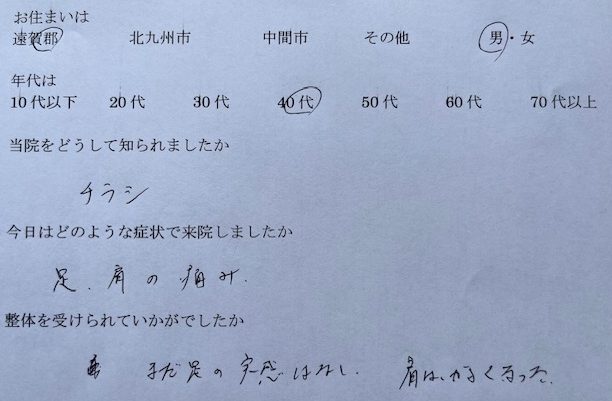 お住まいは
遠賀郡 北九州市 中間市 その他 男・女
年代は
10代以下 20代 30代 40代 50代 60代 70代以上
当院をどうして知られましたか
チラシ
今日はどのような症状で来院しましたか
足、肩の痛み.
整体を受けられていかがでしたか
まだ足の実感はなし. 肩は、かるくなった.